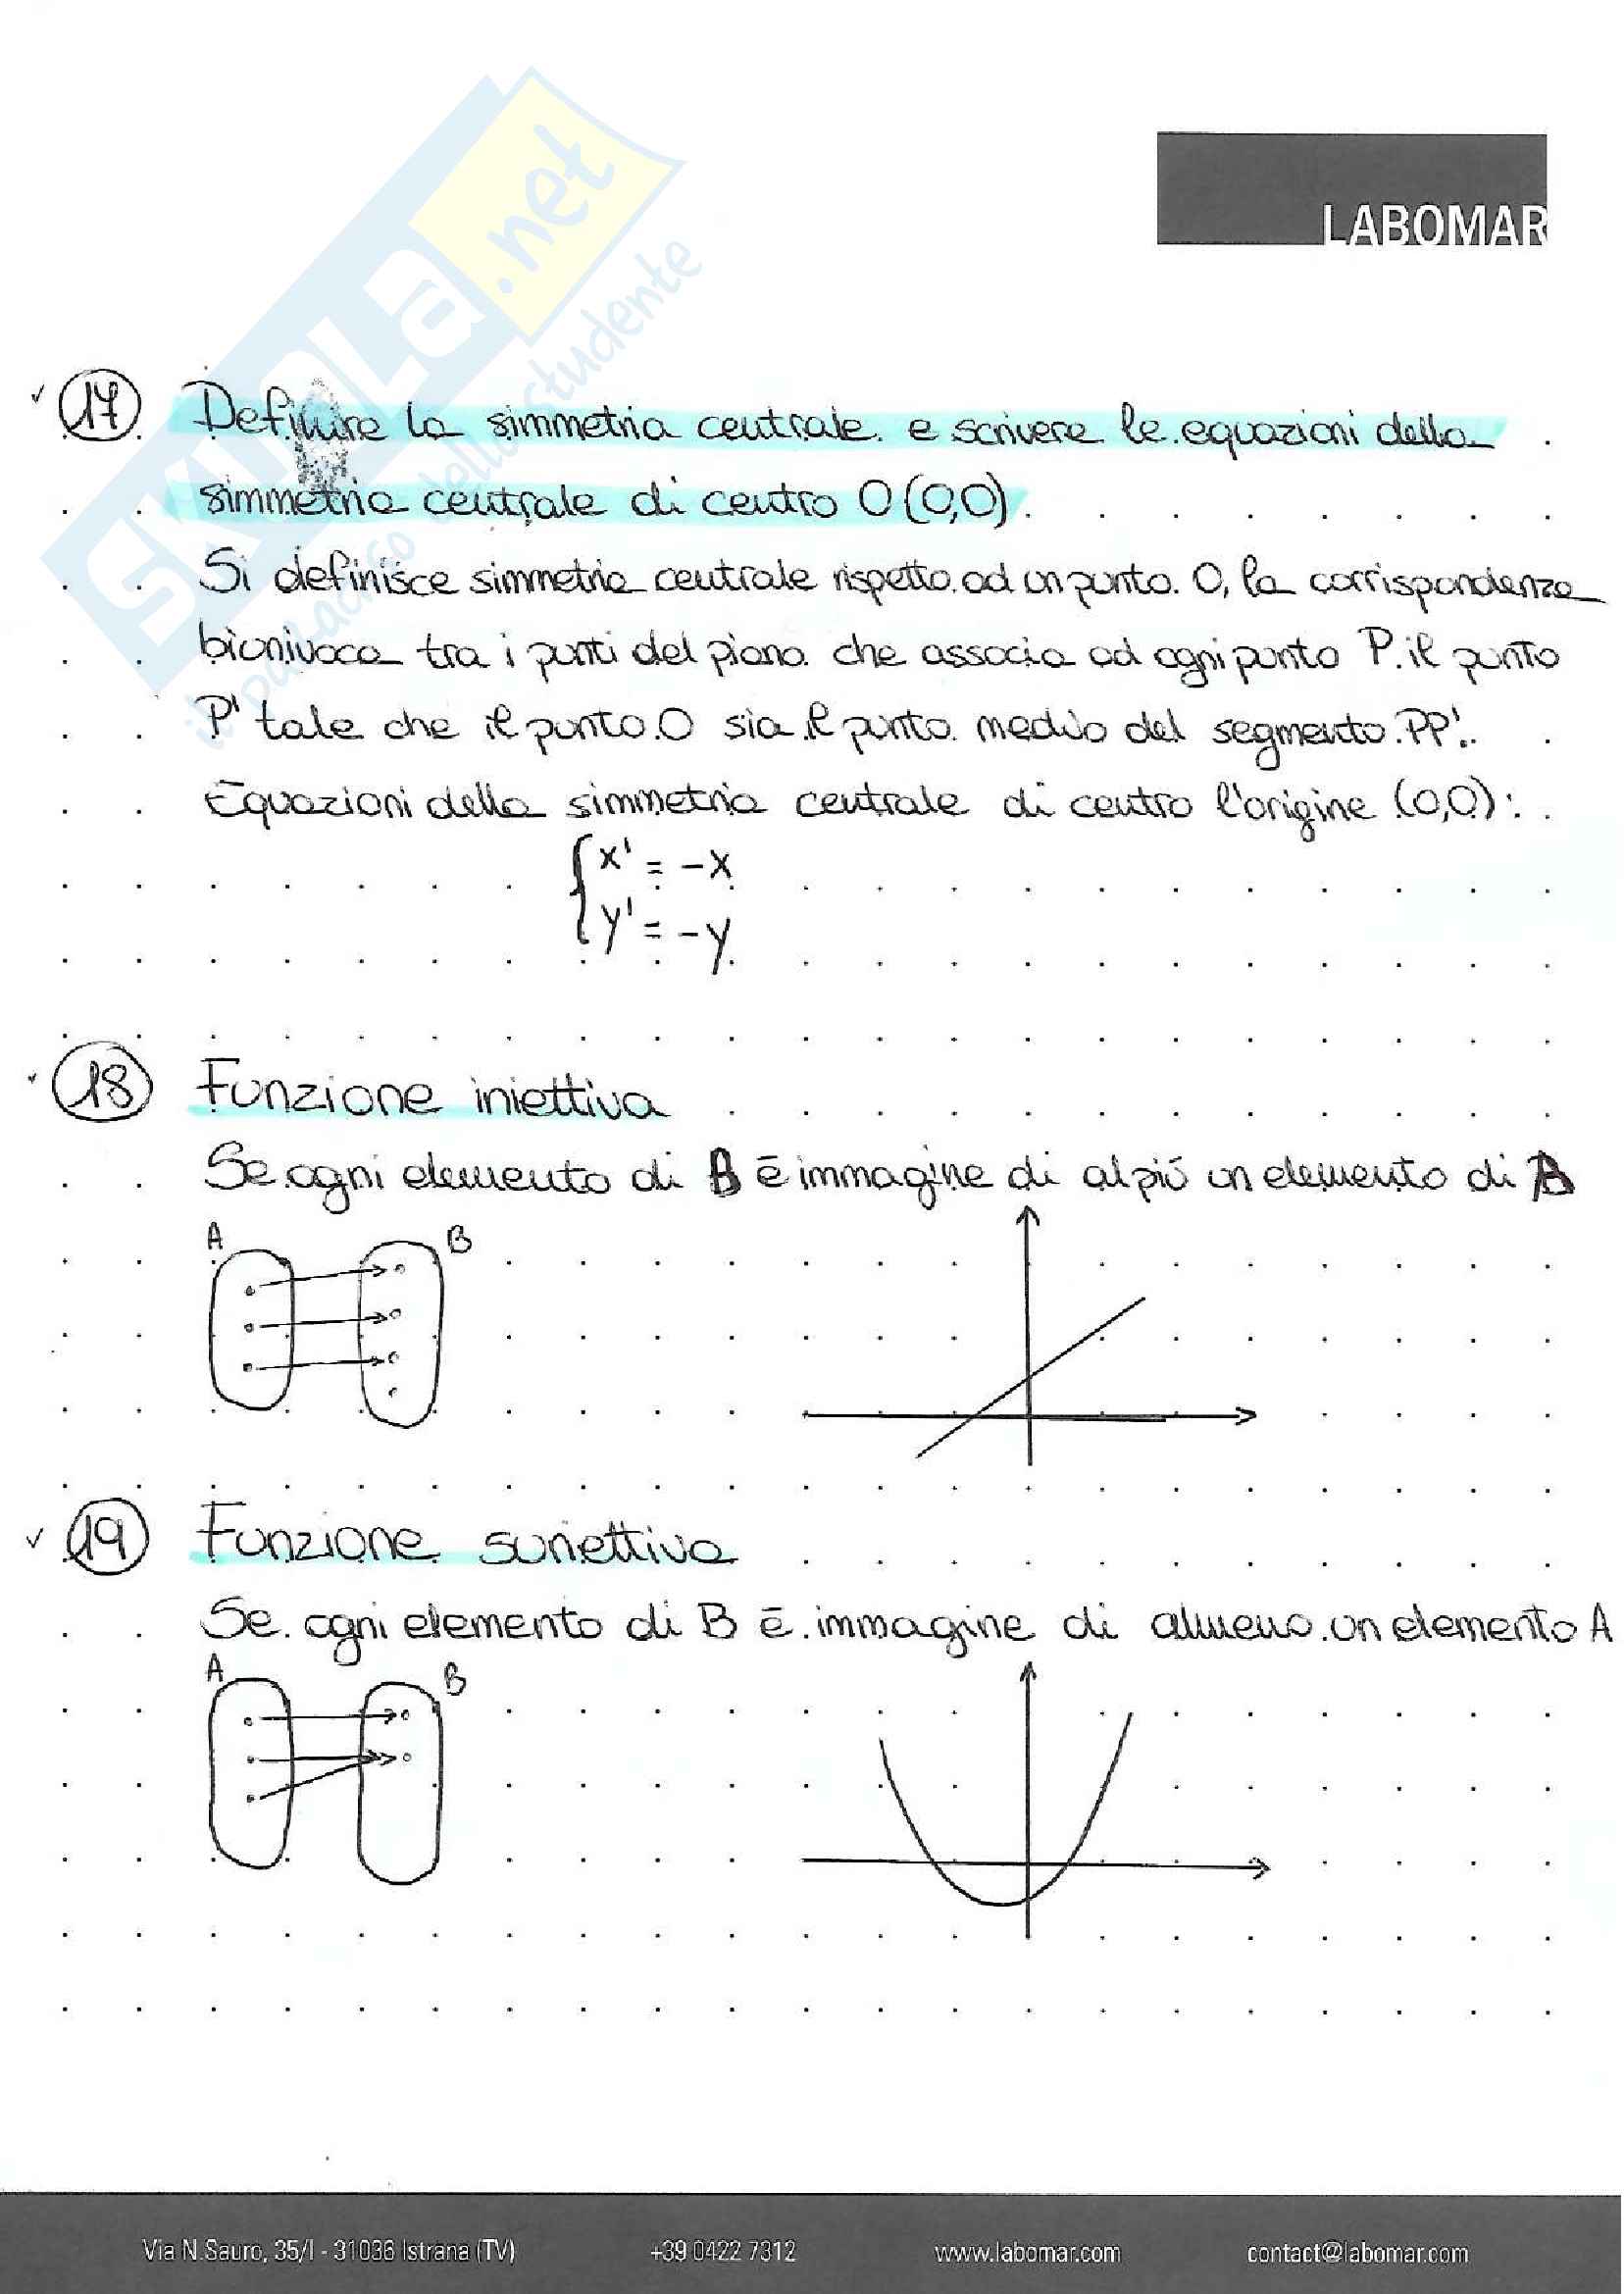 SKUOLa.net
il paradiso dello studente
LABOMAR
17 Definire la simmetria centrale e scrivere le equazioni della
simmetria centrale di centro O (0,0).
Si definisce simmetria centrale rispetto ad un punto O, la corrispondenza
biunivoca tra i punti del piano che associa ad ogni punto P il punto
P' tale che il punto O sia il punto medio del segmento PP'.
Equazioni della simmetria centrale di centro l'origine (0,0):
x' = -x
y' = -y
18 Funzione iniettiva
Se ogni elemento di B è immagine di al più un elemento di A
A B
19 Funzione suriettiva
Se ogni elemento di B è immagine di almeno un elemento A
A B
Via N.Sauro, 35/I - 31036 Istrana (TV) +39 0422 7312 www.labomar.com contact@labomar.com